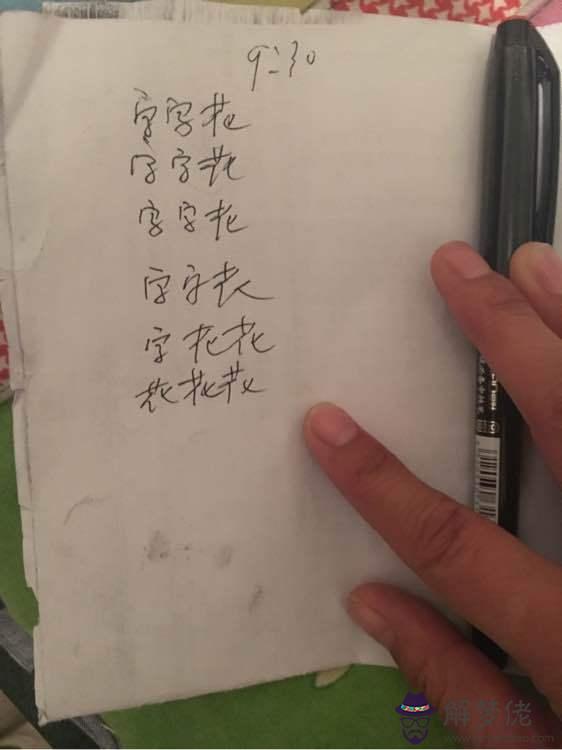 9:30
字字花
字字花
字字花
字字花
字花花
花花花
解梦佬